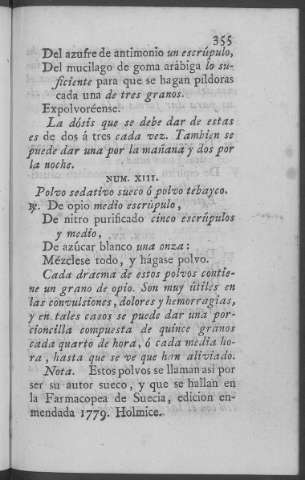 355
Del azufre de antimonio un escrúpulo,
Del mucilago de goma arábiga lo su-
ficiente para que se hagan píldoras
cada una de tres granos.
Expolvoréense.
La dósis que se debe dar de estas
es de dos á tres cada vez. Tambien se
puede dar una por la mañana y dos por
la noche.
NUM. XIII.
Polvo sedativo sueco ó polvo tebayco.
℞. De opio medio escrúpulo,
De nitro purificado cinco escrúpulos
y medio,
De azúcar blanco una onza:
Mézclese todo, y hágase polvo.
Cada dracma de estos polvos contie-
ne un grano de opio. Son muy útiles en
las convulsiones, dolores y hemorragias,
y en tales casos se puede dar una por-
cioncilla compuesta de quince granos
cada quarto de hora, ó cada media ho-
ra, hasta que se ve que han aliviado.
Nota. Estos polvos se llaman así por
ser su autor sueco, y que se hallan en
la Farmacopea de Suecia, edicion en-
mendada 1779. Holmice.